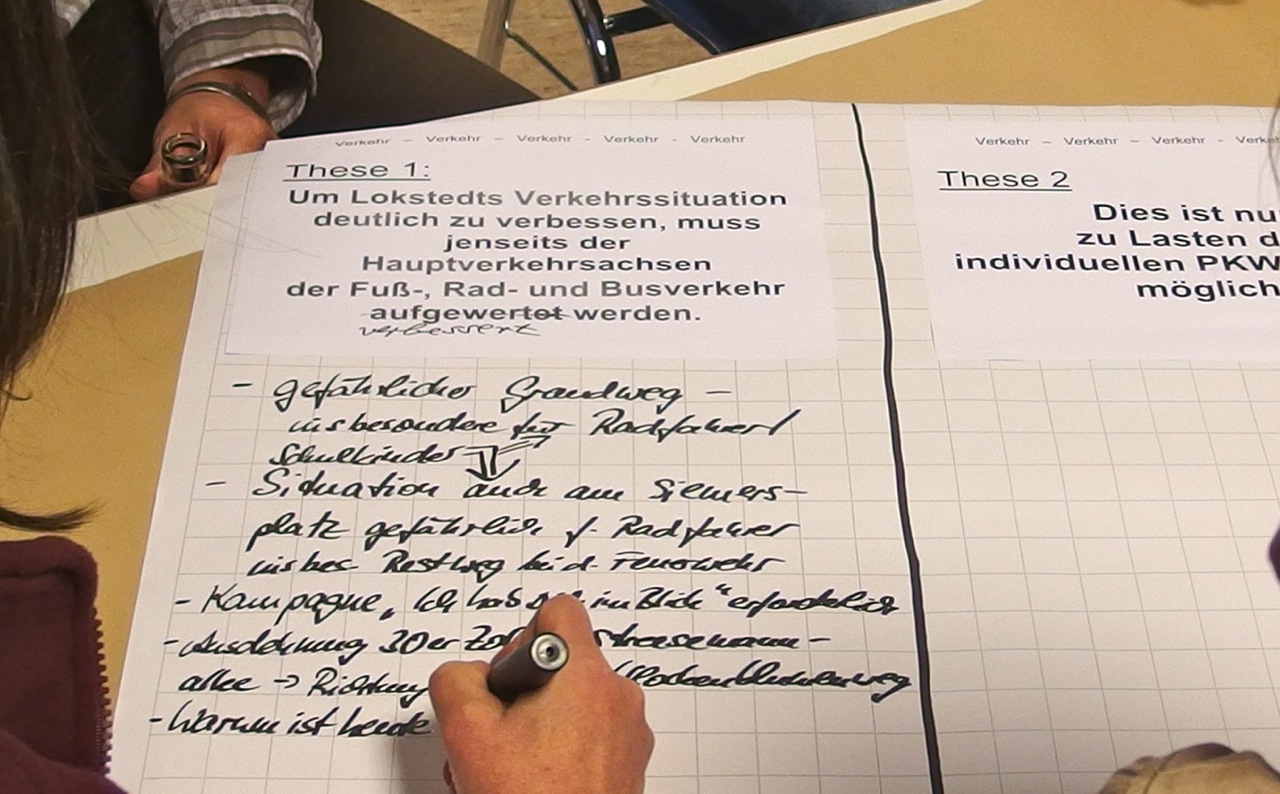 Verkehr – Verkehr – Verkehr - Verkehr - Verkehr
These 1:
Um Lokstedts Verkehrssituation
deutlich zu verbessen, muss
jenseits der
Hauptverkehrsachsen
der Fuß-, Rad- und Busverkehr
aufgewertet werden.
verbessert
- gefährlicher Grandweg -
insbesondere für Radfahrer/
Schulkinder
- Situation auch am Siemers-
platz gefährlich f. Radfahrer
insbes. Restweg bei d. Feuerwehr
- Kampagne „Ich hab im Blick“ erforderlich
- Ausdehnung 30er Stresemann-
allee → Richtung
- Warum ist heute
Verkehr – Verkehr – Verkehr – Verke
These 2
Dies ist nu
zu Lasten d
individuellen PKW
möglich